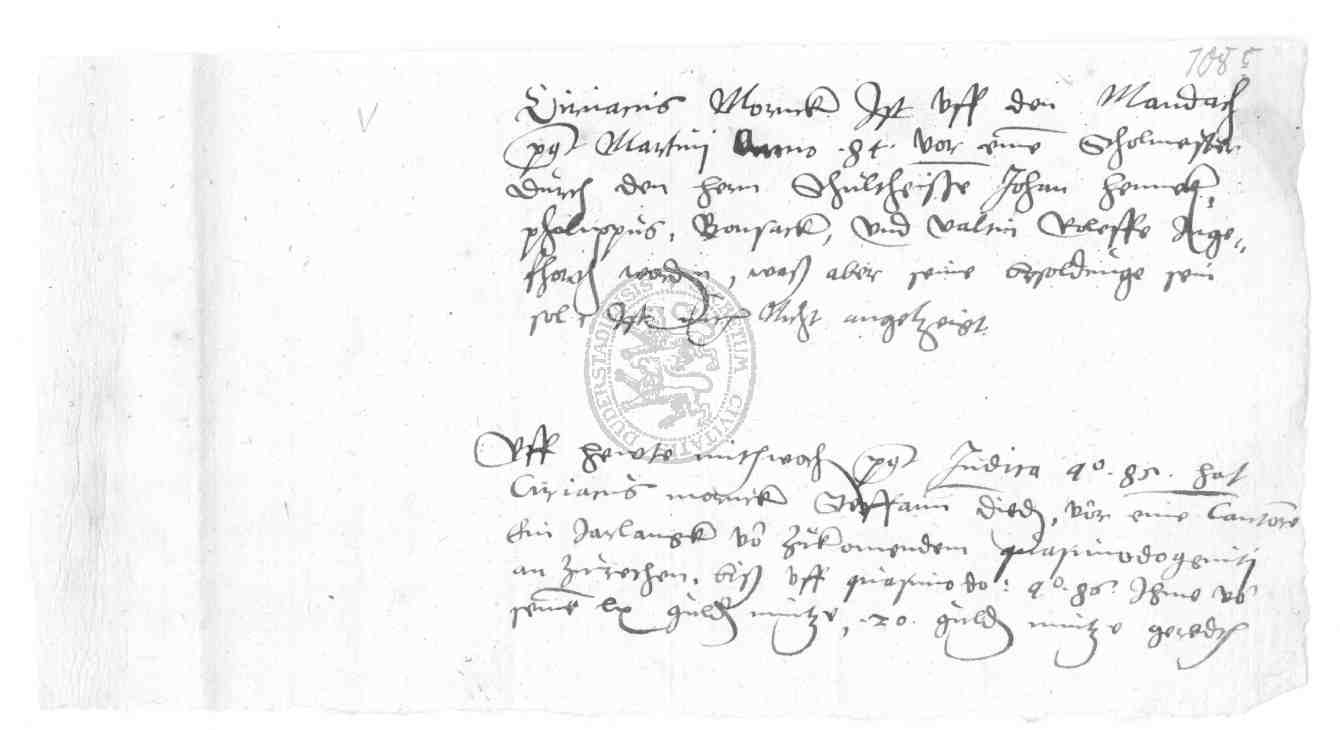 1085
Ciriacus Mornick Ist vff den Mandach
post Martinj Anno .84. vor eine Scholmeister
durch den hern Schultheisse Johan
philippus, Bonsack, vnd valtin Roleffe Ange„
worden, waß aber seine besoldunge sein
sol Ist Nicht angetzeigt.
DUDERSTADIENSIS CIVITATIS
Vff heute mithwoch post Judica ao. 85. hat
Ciriacus mornick Steffann died, vor eine Cantore
Ein Jarlangk vo zukomendem quasimodogenitj
an zurechen, biß vff quasimodo: ao. 86. Ihme vo
seine lx guld muntze, .20. guld muntze geredt